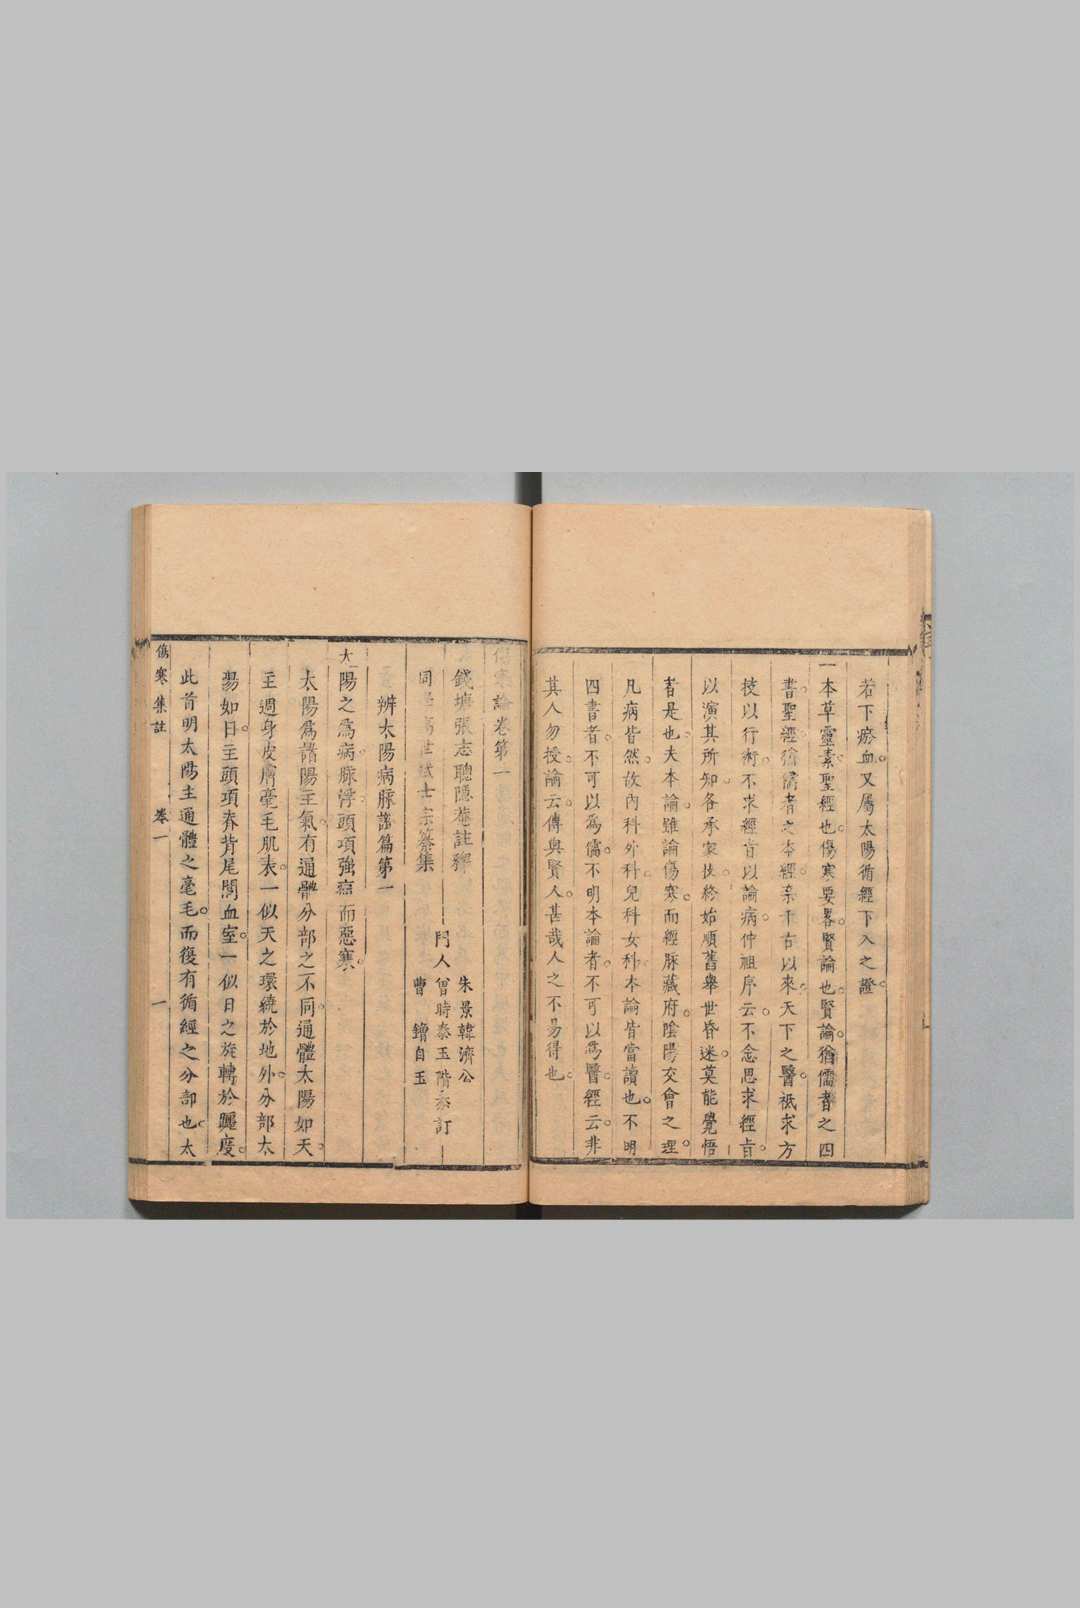 若下瘀血又屬太陽循經下入之證
一本草靈素聖經也傷寒要畧賢論也賢論猶儒者之四
書聖經猶儒者之本經亲千古以來天下之醫祗求方
技以行術不求經旨以論病仲祖序云不念思求經旨
以演其所知各承家技終始順舊舉世昏迷莫能覺悟
者是也夫本論雖論傷寒而經脈藏府陰陽交會之理
凡病皆然故內科外科兒科女科本論皆當讀也不明
四書者不可以爲儒不明本論者不可以爲醫經云非
其人勿授論云傳與賢人甚哉人之不易得也
傷寒論卷第一
錢塘張志聰隱菴註釋
同學高世栻士宗纂集
門人
朱景韓濟公
曾時泰玉階叅訂
曹 鐀自玉
辨太陽病脈證篇第一
太陽之爲病脈浮頭項強痛而惡寒
太陽爲諸陽主氣有通體分部之不同通體太陽如天
主週身皮膚毫毛肌表一似天之環繞於地外分部太
陽如日主頭項脊背尾閭血室一似日之旋轉於躔度
此首明太陽主通體之毫毛而復有循經之分部也太
傷寒集註 卷一 一